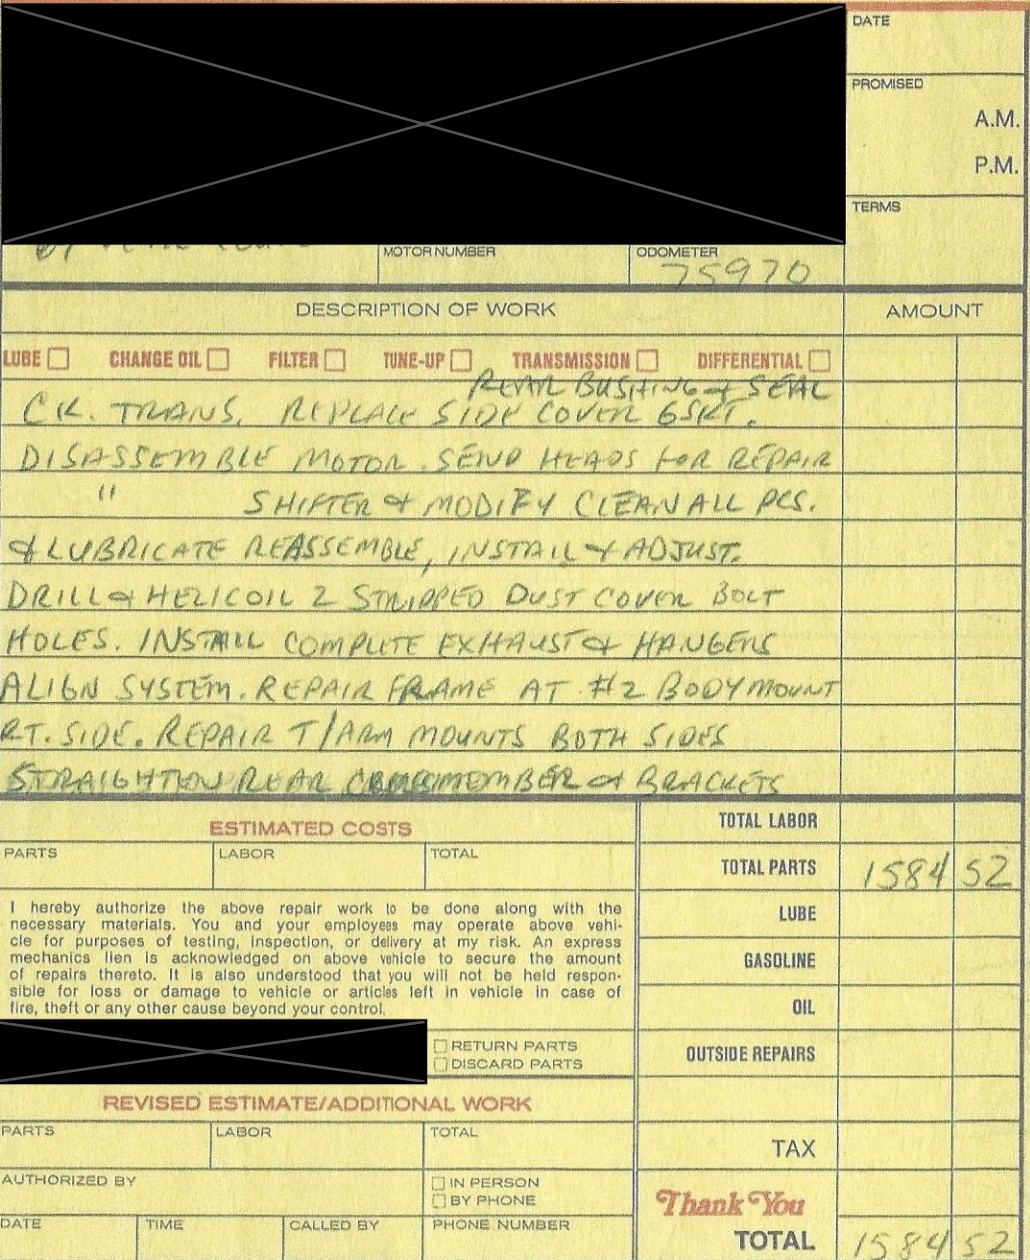 DATE
PROMISED
A.M.
P.M.
TERMS
MOTOR NUMBER
ODOMETER
75970
DESCRIPTION OF WORK
AMOUNT
LUBE CHANGE OIL FILTER TUNE-UP TRANSMISSION DIFFERENTIAL
REAR BUSHING & SEAL
CK. TRANS. REPLACE SIDE COVER GSKT.
DISASSEMBLE MOTOR. SEND HEADS FOR REPAIR
" SHIFTER & MODIFY CLEAN ALL PCS.
& LUBRICATE REASSEMBLE, INSTALL & ADJUST.
DRILL & HELICOIL 2 STRIPPED DUST COVER BOLT
HOLES. INSTALL COMPLETE EXHAUST & HANGERS
ALIGN SYSTEM. REPAIR FRAME AT #2 BODY MOUNT
RT. SIDE. REPAIR T/ARM MOUNTS BOTH SIDES
STRAIGHTEN REAR CROSSMEMBER & BRACKETS
ESTIMATED COSTS
PARTS LABOR TOTAL
I hereby authorize the above repair work to be done along with the
necessary materials. You and your employees may operate above vehi-
cle for purposes of testing, inspection, or delivery at my risk. An express
mechanics lien is acknowledged on above vehicle to secure the amount
of repairs thereto. It is also understood that you will not be held respon-
sible for loss or damage to vehicle or articles left in vehicle in case of
fire, theft or any other cause beyond your control.
RETURN PARTS
DISCARD PARTS
REVISED ESTIMATE/ADDITIONAL WORK
PARTS LABOR TOTAL
AUTHORIZED BY
IN PERSON
BY PHONE
DATE TIME CALLED BY PHONE NUMBER
TOTAL LABOR
TOTAL PARTS 1584 52
LUBE
GASOLINE
OIL
OUTSIDE REPAIRS
TAX
Thank You
TOTAL 1584 52